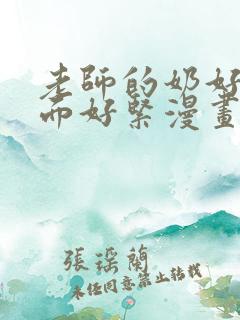 老師的奶好
而好緊漫畫
張瑤蘭
未经同意禁止转载